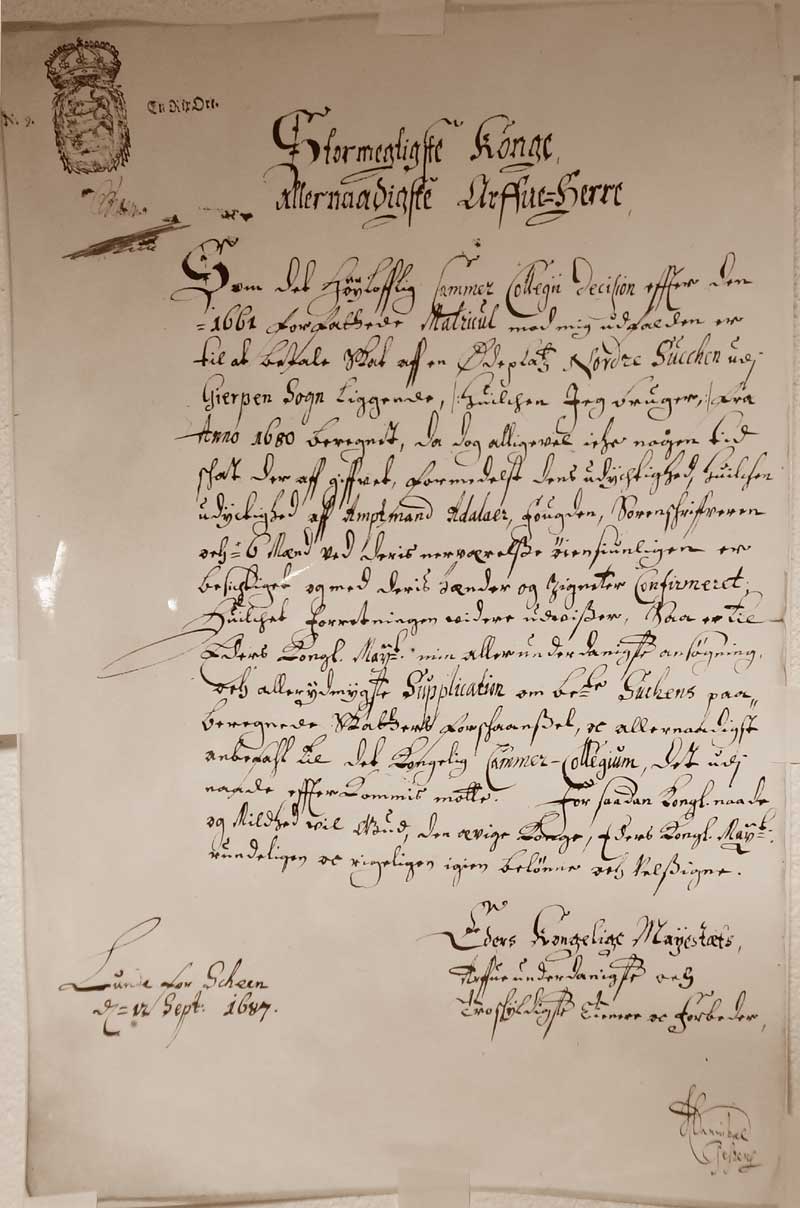 N. 9.
En Rix Ort.
Stormegtigste Konge,
Allernaadigste Arffue=Herre,
Som det Høyloflig Cammer Collegij Decision effter den
=1661 forfattede Matricul mod mig udfalden er
til at betale Skat aff en Ødeplatz Nordre Succhen udj
Gierpen Sogn Liggende, /: Huilchen Jeg bruger, :/ fra
Anno 1680 beregnet, da dog alligevel iche nogen tid
schat der aff giffvet, formedelst dens udyctighed, Huilchen
udyctighed aff Amptmand Adalaer, Fougden, Sorenschriffveren
och =6 Mænd ved deris nerværelsse øiensiunligen er
besichtiget og med deris Hænder og Zigneter Confirmeret,
Huilchet Forretningen videre udvisser, Saa er til
Eders Kongl. Mayt. min allerunderdanigste ansøgning,
och allerydmygste Supplication om bete Suchens paa„
beregnede Skatters forschaanssel, oc allernaadigst
anbefahl til det Kongelig Cammer-Collegium, det udj
naade effterkommis motte. For saadan Kongl. naade
og Mildhed vil Gud, den ævige Konge, Eders Kongl. Mayt:
rundeligen oc rigeligen igien belønne och Velssigne.
Eders Kongelige Mayestæts,
Arffueunderdanigste och
Troskyldigste Tienere oc Forbeder,
Lunde for Scheen
d. =12 Sept. 1687.
Hannibal